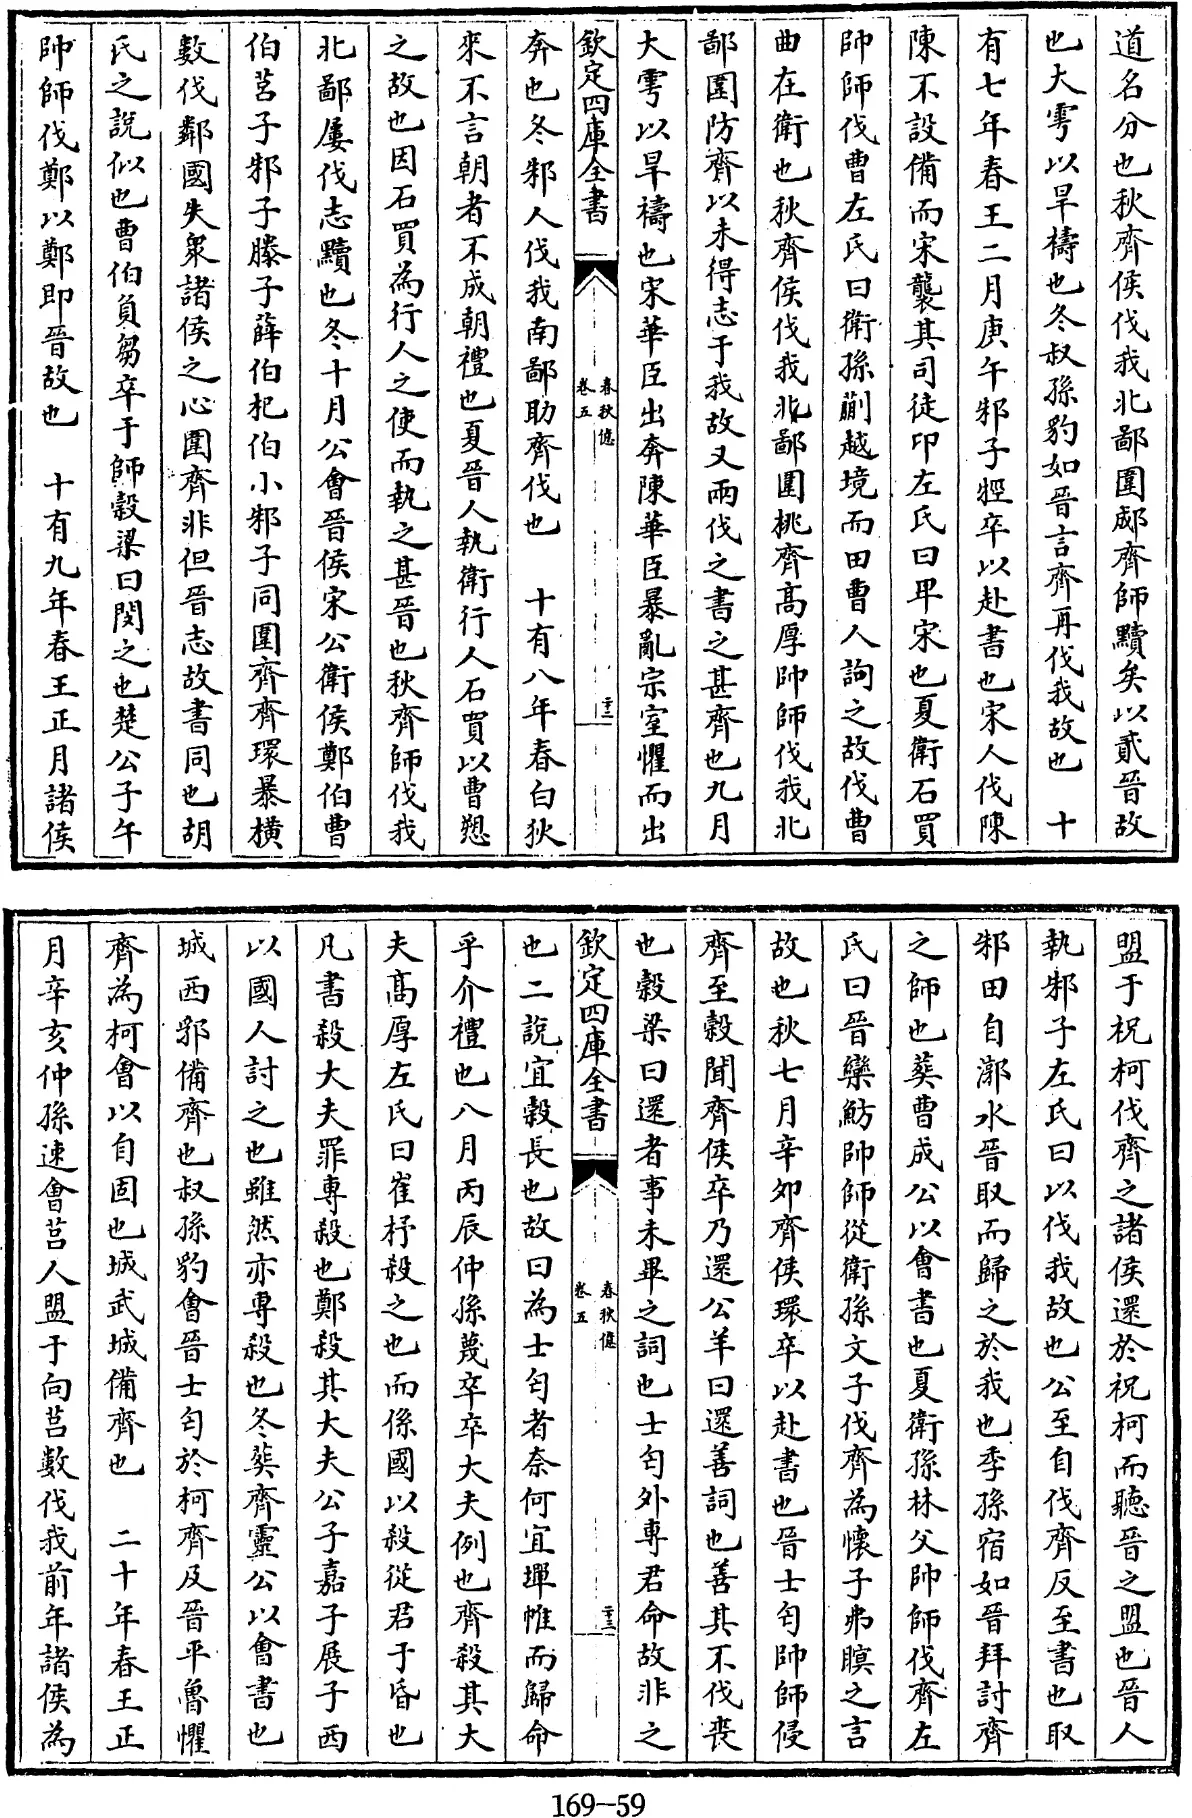 道名分也秋齊侯伐我北鄙圍郕齊師黷矣以貳晉故
也大雩以旱禱也冬叔孫豹如晉言齊再伐我故也　十
有七年春王二月庚午邾子牼卒以赴書也宋人伐陳
陳不設備而宋襲其司徒卬左氏曰卑宋也夏衛石買
帥師伐曹左氏曰衛孫蒯越境而田曹人詢之故伐曹
曲在衛也秋齊侯伐我北鄙圍桃齊高厚帥師伐我北
鄙圍防齊以未得志于我故又兩伐之書之甚齊也九月
大雩以旱禱也宋華臣出奔陳華臣暴亂宗室懼而出
欽定四庫全書
春秋億
卷五
二十二
奔也冬邾人伐我南鄙助齊伐也　十有八年春白狄
來不言朝者不成朝禮也夏晉人執衛行人石買以曹愬
之故也因石買為行人之使而執之甚晉也秋齊師伐我
北鄙屢伐志黷也冬十月公會晉侯宋公衛侯鄭伯曹
伯莒子邾子滕子薛伯杞伯小邾子同圍齊齊環暴橫
數伐鄰國失衆諸侯之心圍齊非但晉志故書同也胡
氏之說似也曹伯負芻卒于師穀梁曰閔之也楚公子午
帥師伐鄭以鄭即晉故也　十有九年春王正月諸侯
盟于祝柯伐齊之諸侯還於祝柯而聽晉之盟也晉人
執邾子左氏曰以伐我故也公至自伐齊反至書也取
邾田自漷水晉取而歸之於我也季孫宿如晉拜討齊
之師也葬曹成公以會書也夏衛孫林父帥師伐齊左
氏曰晉欒魴帥師從衛孫文子伐齊為懷子弗瞑之言
故也秋七月辛卯齊侯環卒以赴書也晉士匄帥師侵
齊至穀聞齊侯卒乃還公羊曰還善詞也善其不伐喪
也穀梁曰還者事未畢之詞也士匄外專君命故非之
欽定四庫全書
春秋億
卷五
二十三
也二說宜穀長也故曰為士匄者奈何宜墠帷而歸命
乎介禮也八月丙辰仲孫蔑卒卒大夫例也齊殺其大
夫高厚左氏曰崔杼殺之也而係國以殺從君于昏也
凡書殺大夫罪專殺也鄭殺其大夫公子嘉子展子西
以國人討之也雖然亦專殺也冬葬齊靈公以會書也
城西郛備齊也叔孫豹會晉士匄於柯齊及晉平魯懼
齊為柯會以自固也城武城備齊也　二十年春王正
月辛亥仲孫速會莒人盟于向莒數伐我前年諸侯為
169—59